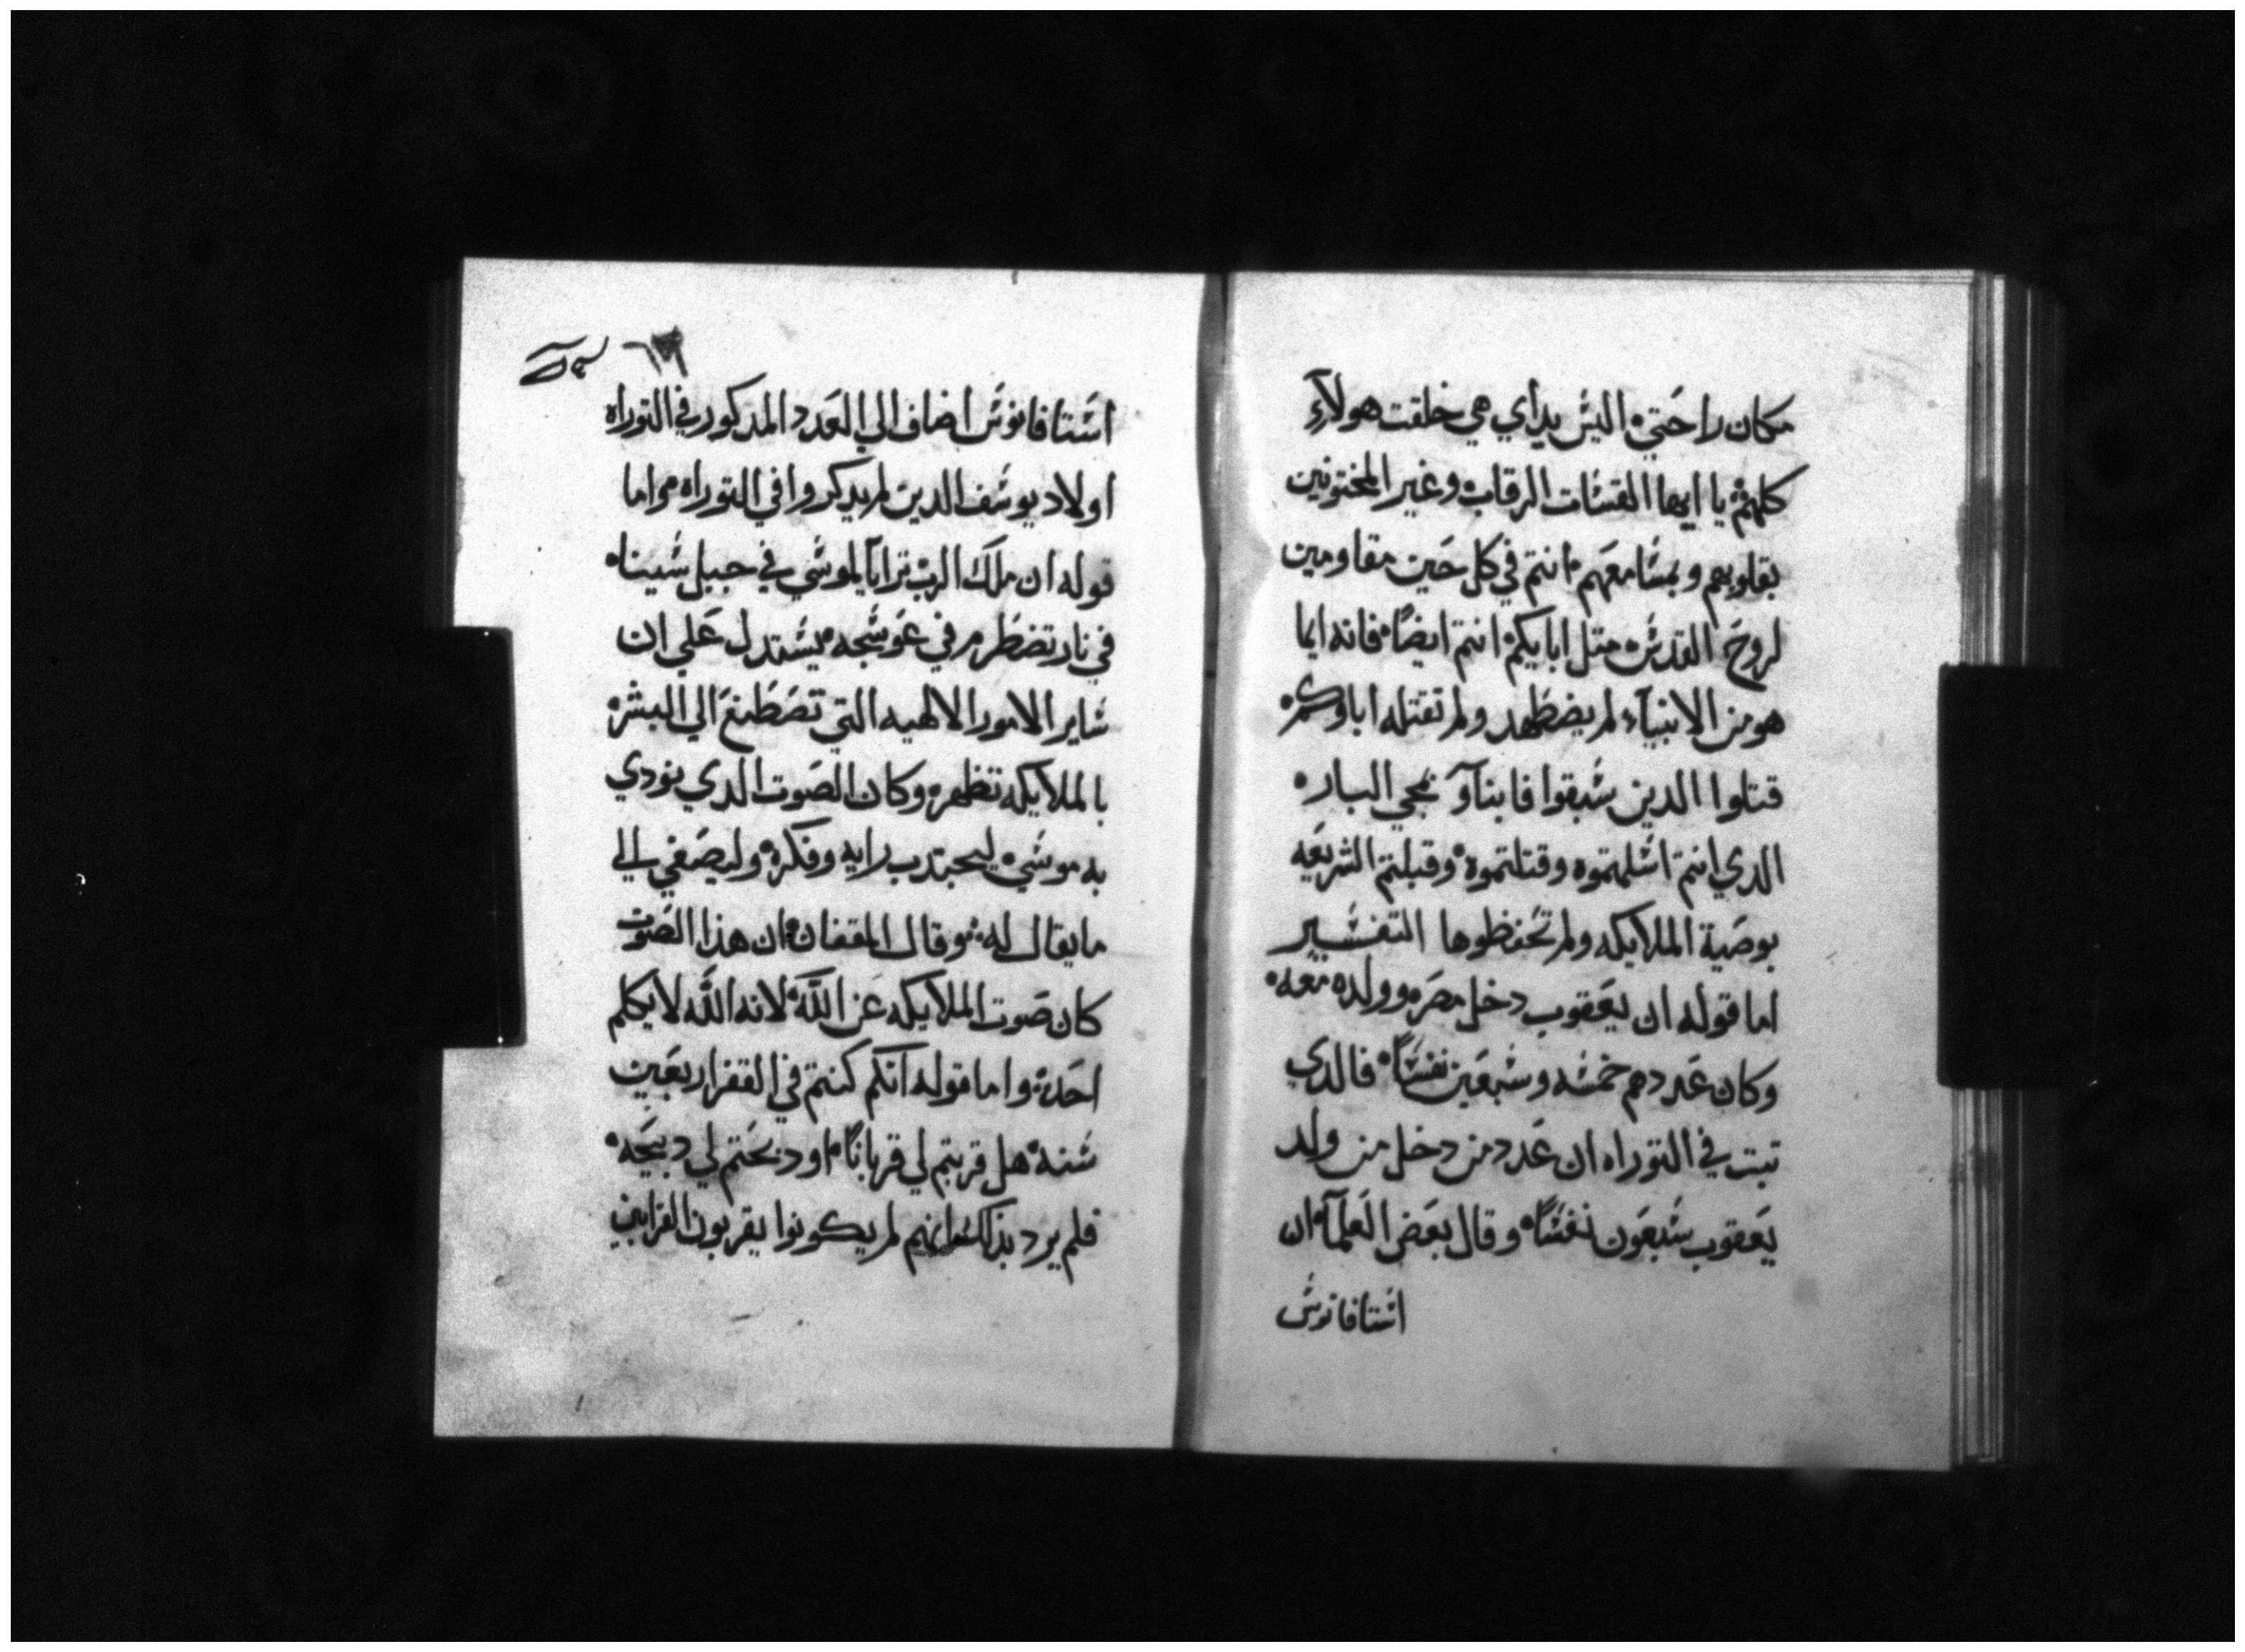 مكان راحتي اليس يداي هي خلقت هولآء
كلهم يا ايها القساة الرقاب وغير المختونين
بقلوبهم وبمسامعهم انتم في كل حين مقاومين
لروح القدس متل ابايكم انتم ايضاً فانه ايما
هو من الانبيآء لم يضطهد ولم تقتله اباوكم
قتلوا الدين سبقوا فابنآو بمجي البار
الدي انتم اسلمتموه وقتلتموه وقبلتم الشريعه
بوصية الملايكه ولم تحفظوها التفسير
اما قوله ان يعقوب دخل مصر وولده معه
وكان عددهم خمسه وسبعين نفساً فالدي
تبت في التوراه ان عدد من دخل من ولد
يعقوب سبعون نفساً وقال بعض العلمآ ان
استافانوس
استافانوس اضاف الي العدد المدكور في التوراه
اولاد يوسف الدين لم يدكروا في التوراه واما
قوله ان ملك الرب ترايا لموسي في جبل سينا
في نار تضطرم في عوسجه يستدل علي ان
ساير الامور الالهيه التي تصطنع الي البشر
بالملايكه تظهر وكان الصوت الدي نودي
به موسي ليجتدب رايه وفكره وليصغي الي
ما يقال له وقال المقفان ان هذا الصوت
كان صوت الملايكه عن اللّه لانه اللّه لا يكلم
احد واما قوله انكم كنتم في القفر اربعين
سنه هل قربتم لي قرباناً او دبحتم لي دبيحه
فلم يرد بذلك انهم لم يكونوا يقربون القرابين